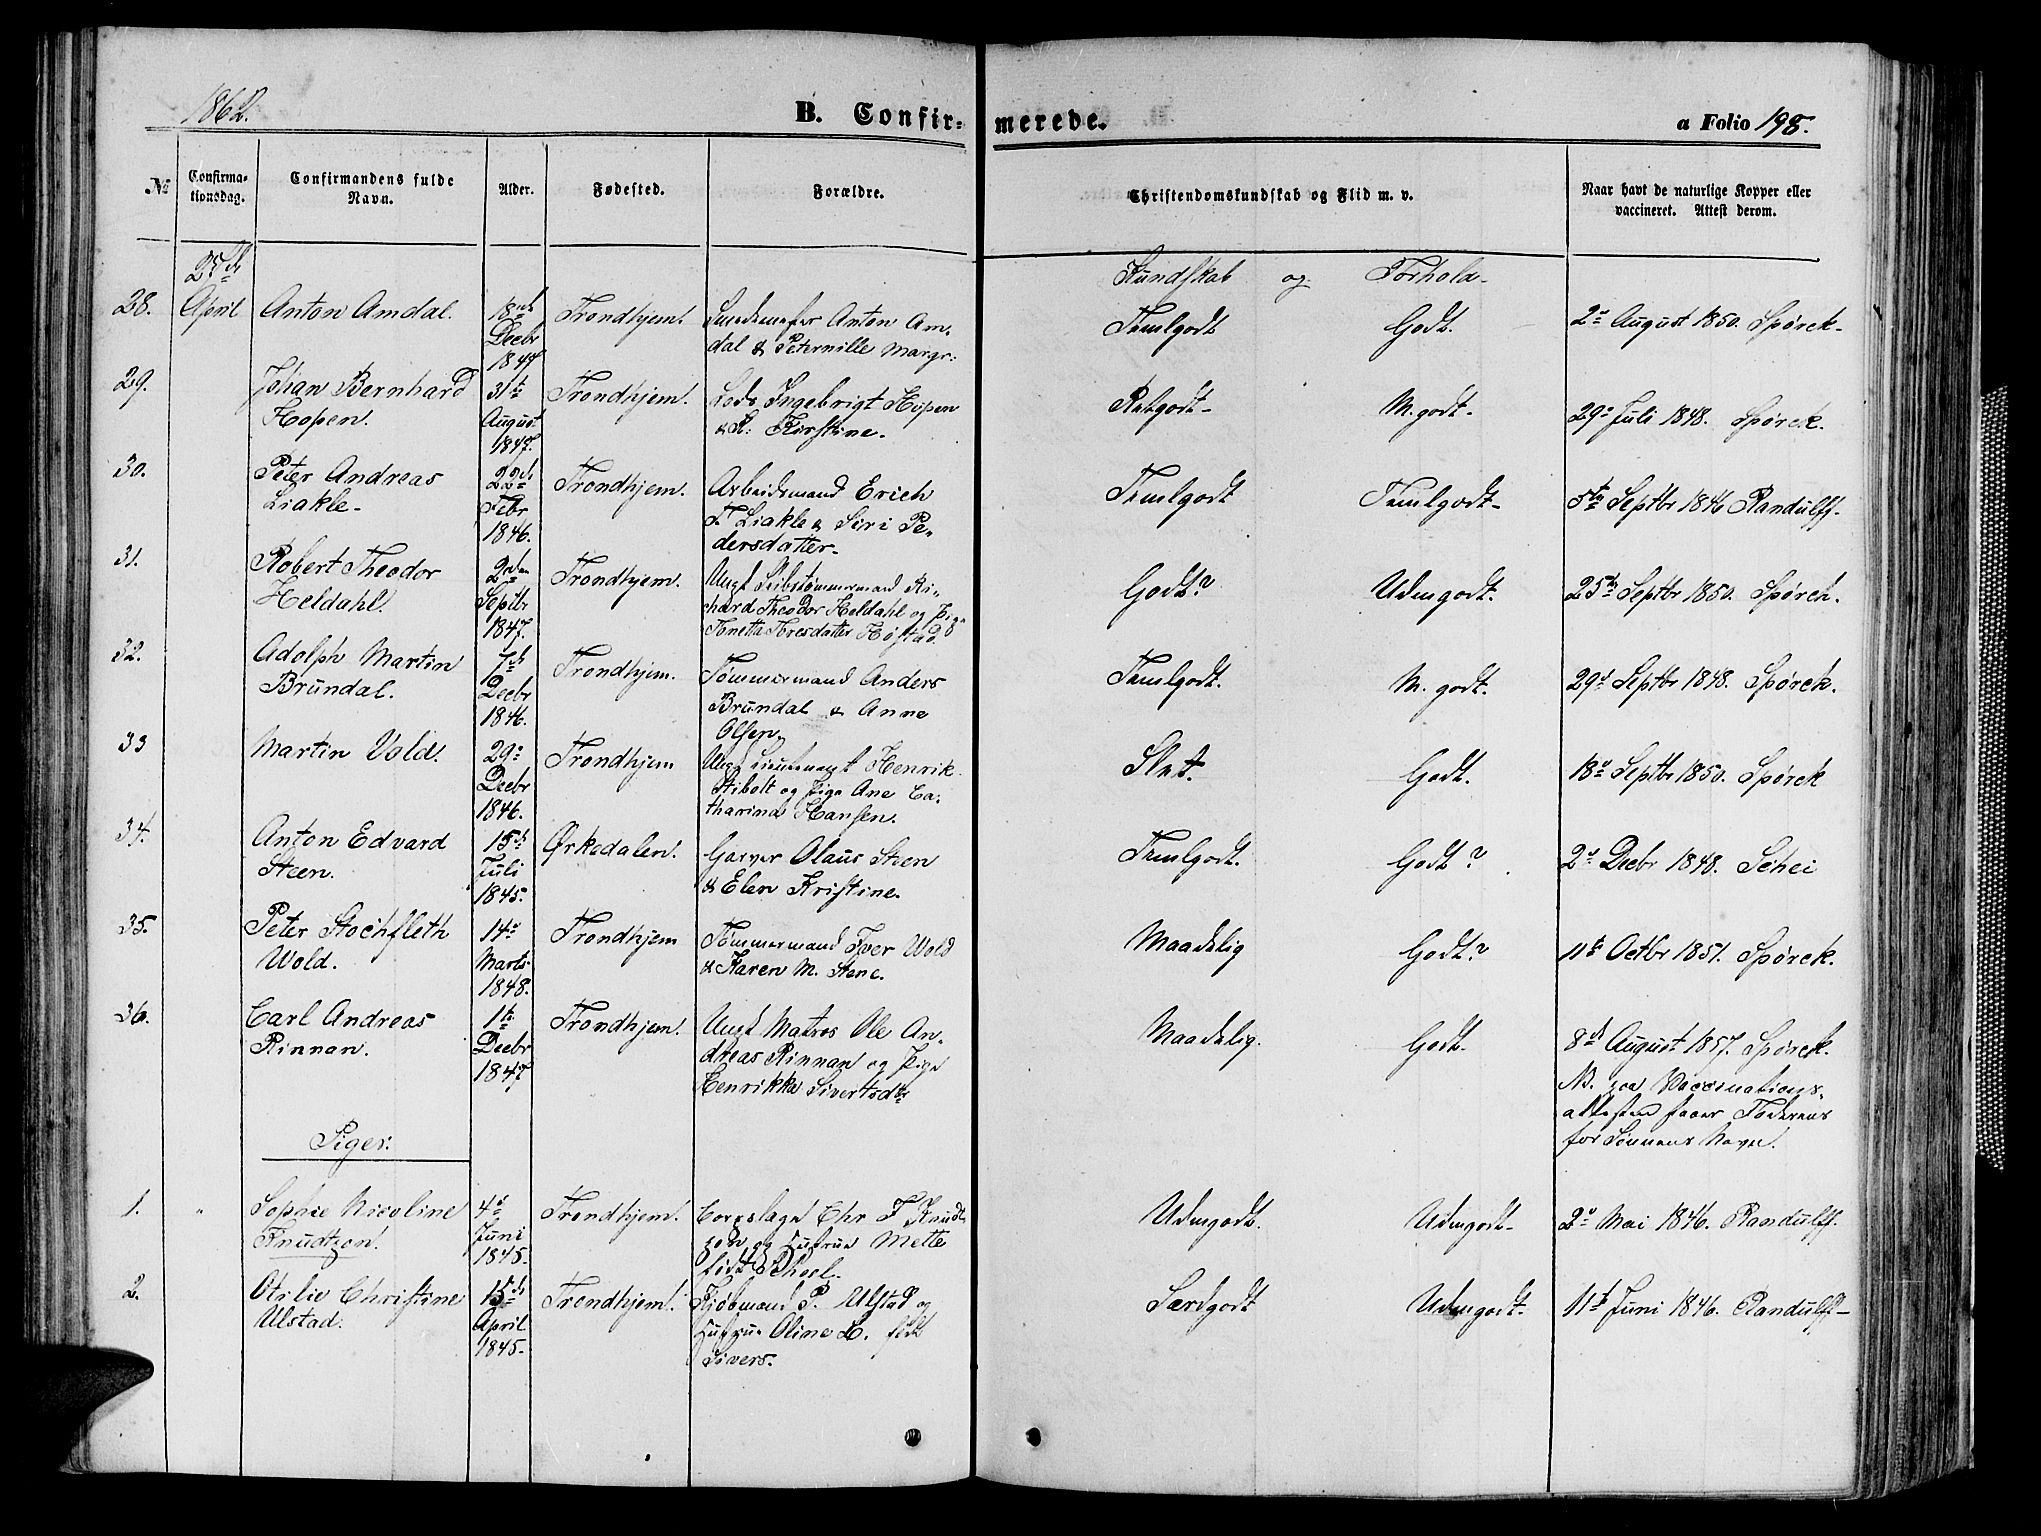 1862.
B. Confir-
merede.
a Folio 198.
No
Confirma-
tionsdag.
Confirmandens fulde
Navn.
Alder.
Fødested.
Forældre.
Christendomskundskab og Flid m. v.
Naar havt de naturlige Kopper eller
vaccineret. Attest derom.
Kundskab og Forhold-
28. 27de April Anton Amdal. 18de Decbr 1847 Trondhjem. Smedemester Anton Am-
dal & Peternille Margr:
Temlgodt Godt. 2n August 1850. Spørck-
29. Johan Bernhard
Hopen.
31te August 1847. Trondhjem. Lods Ingebrigt Hopen
& K: Kirstine.
Retgodt- M. godt. 29n Juli 1848. Spørck.
30. Peter Andreas
Liakle-
22de Febr 1846. Trondhjem. Arbeidsmand Erich
T. Liakle & Siri Pe-
dersdatter-
Temlgodt Temlgodt- 5te Septbr 1846 Randulff-
31. Robert Theodor
Heldahl.
2den Septbr 1847. Trondhjem. Ungk Skibstømmermand Ri-
chard Theodor Heldahl og Pige
Høstad.
Godt? Udmgodt. 25de Septbr 1850. Spørck.
32. Adolph Martin
Brundal.
7de Decbr 1846. Trondhjem. Tømmermand Anders
Brundal & Anne
Olsen.
Temlgodt. M. godt. 29de Septbr 1848. Spørck.
33 Martin Vold. 29n Decbr 1846. Trondhjem Ungk Lieutenant Henrik
Stibolt og Pige Ane Ca-
tharina Hansen.
Slet. Godt. 18de Septbr 1850. Spørck
34. Anton Edvard
Steen.
15de Juli 1845. Ørkedalen. Garver Olaus Steen
& Elen Kristine.
Temlgodt. Godt? 2n Decbr 1848. Schei
35. Peter Stochfleth
Wold.
14n Marts 1848. Trondhjem Tømmermand Iver Wold
& Karen M. Stene.
Maadelig Godt? 11te Octbr 1851. Spørck.
36. Carl Andreas
Rinnan.
1te Decbr 1847 Trondhjem. Ungk Matros Ole An-
dreas Rinnan og Pige
Henrikka Sivertsdtr
Maadelig. Godt. 8de August 1857. Spørck.
NB. paa Vaccinations-
attesten staaer Faderens
for Sønnens Navn.
Piger:
1. " Sophie Nicoline
Knudtzon.
4n Juni 1845. Trondhjem. Chr F Knudt-
zon og Hustrue Mette
født
Udmgodt. Udmgodt- 2n Mai 1846. Randulff.
2. Otilie Christine
Ulstad.
15de April 1845. Trondhjem. Kjøbmand P. Ulstad og
Hustrue Oline L. født
Sivers.
Særdgodt Udmgodt. 11te Juni 1846. Randulff-